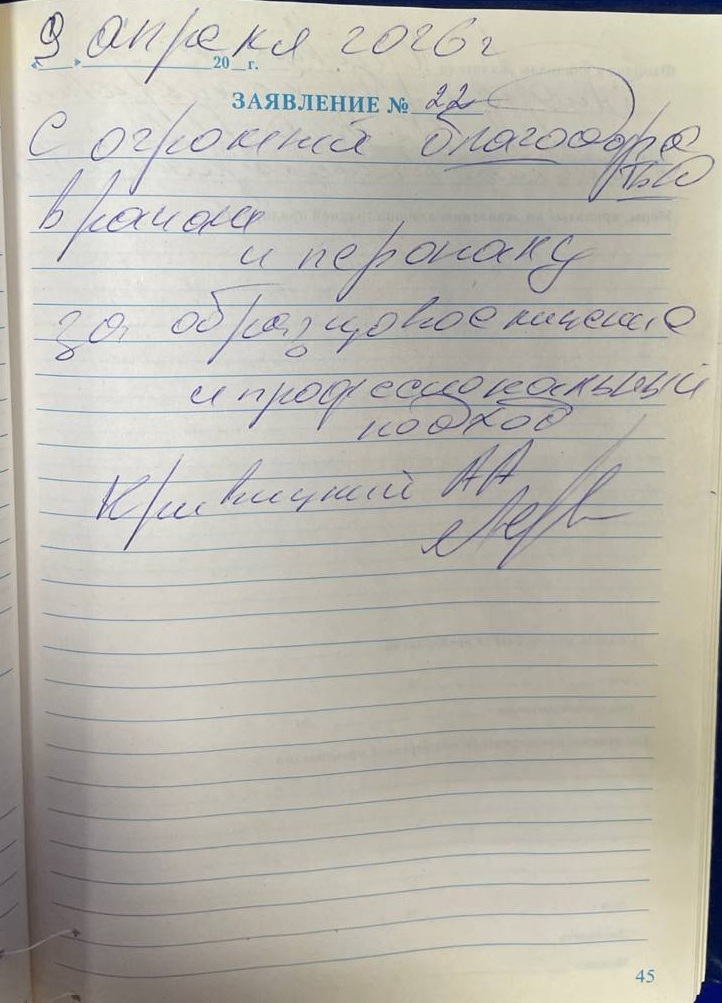 9 апреля 2026 г
« » 20 г.
ЗАЯВЛЕНИЕ № 22
С огромной благода
рю
врачам
и персоналу
за образцовое лечение
и профессиональный
подход
Кривицкий АА
45